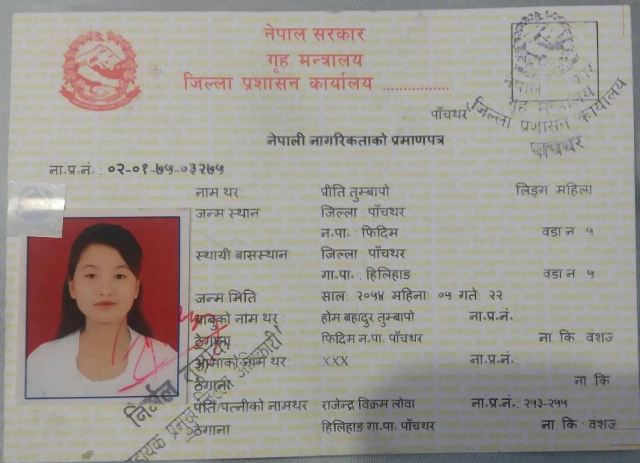 नेपाल सरकार
गृह मन्त्रालय
जिल्ला प्रशासन कार्यालय ................
पाँचथर
नेपाल सरकार
गृह मन्त्रालय
जिल्ला प्रशासन कार्यालय
पाँचथर
नेपाली नागरिकताको प्रमाणपत्र
ना.प्र.नं. : ०२-०१-७५-०३२७५
नाम थर प्रीति तुम्बापो लिङ्ग महिला
जन्म स्थान जिल्ला पाँचथर
न.पा. फिदिम वडा न ५
स्थायी बासस्थान जिल्ला पाँचथर
गा.पा. : हिलिहाङ वडा न ५
जन्म मिति साल: २०५४ महिना ०५ गते: २२
बाबुको नाम थर होम बहादुर तुम्बापो ना.प्र.नं.
ठेगाना फिदिम न.पा. पाँचथर ना कि वंशज
आमाको नाम थर XXX ना.प्र.नं.
ठेगाना ना कि
पति/पत्नीको नामथर राजेन्द्र विक्रम लोवा ना.प्र.नं.: २५३-२५५
ठेगाना हिलिहाङ गा.पा. पाँचथर ना कि वंशज
निर्मल
प्रमुख जिल्ला अधिकारी